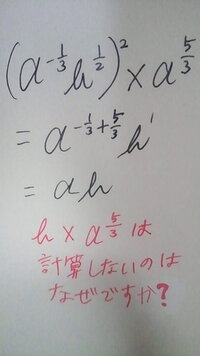 (a^{-\frac{1}{3}}h^{\frac{1}{2}})^2 × a^{\frac{5}{3}}
= a^{-\frac{1}{3}+\frac{5}{3}} h^1
= ah
h × a^{\frac{5}{3}} は
計算しないのは
なぜですか?